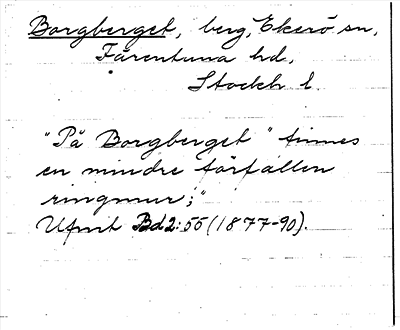 Borgberget, berg, Ekerö sn,
Färentuna hd,
Stockh l.
"På Borgberget" finnes
en mindre förfallen
ringmur;"
Ufmt Bd2:55 (1877-90).